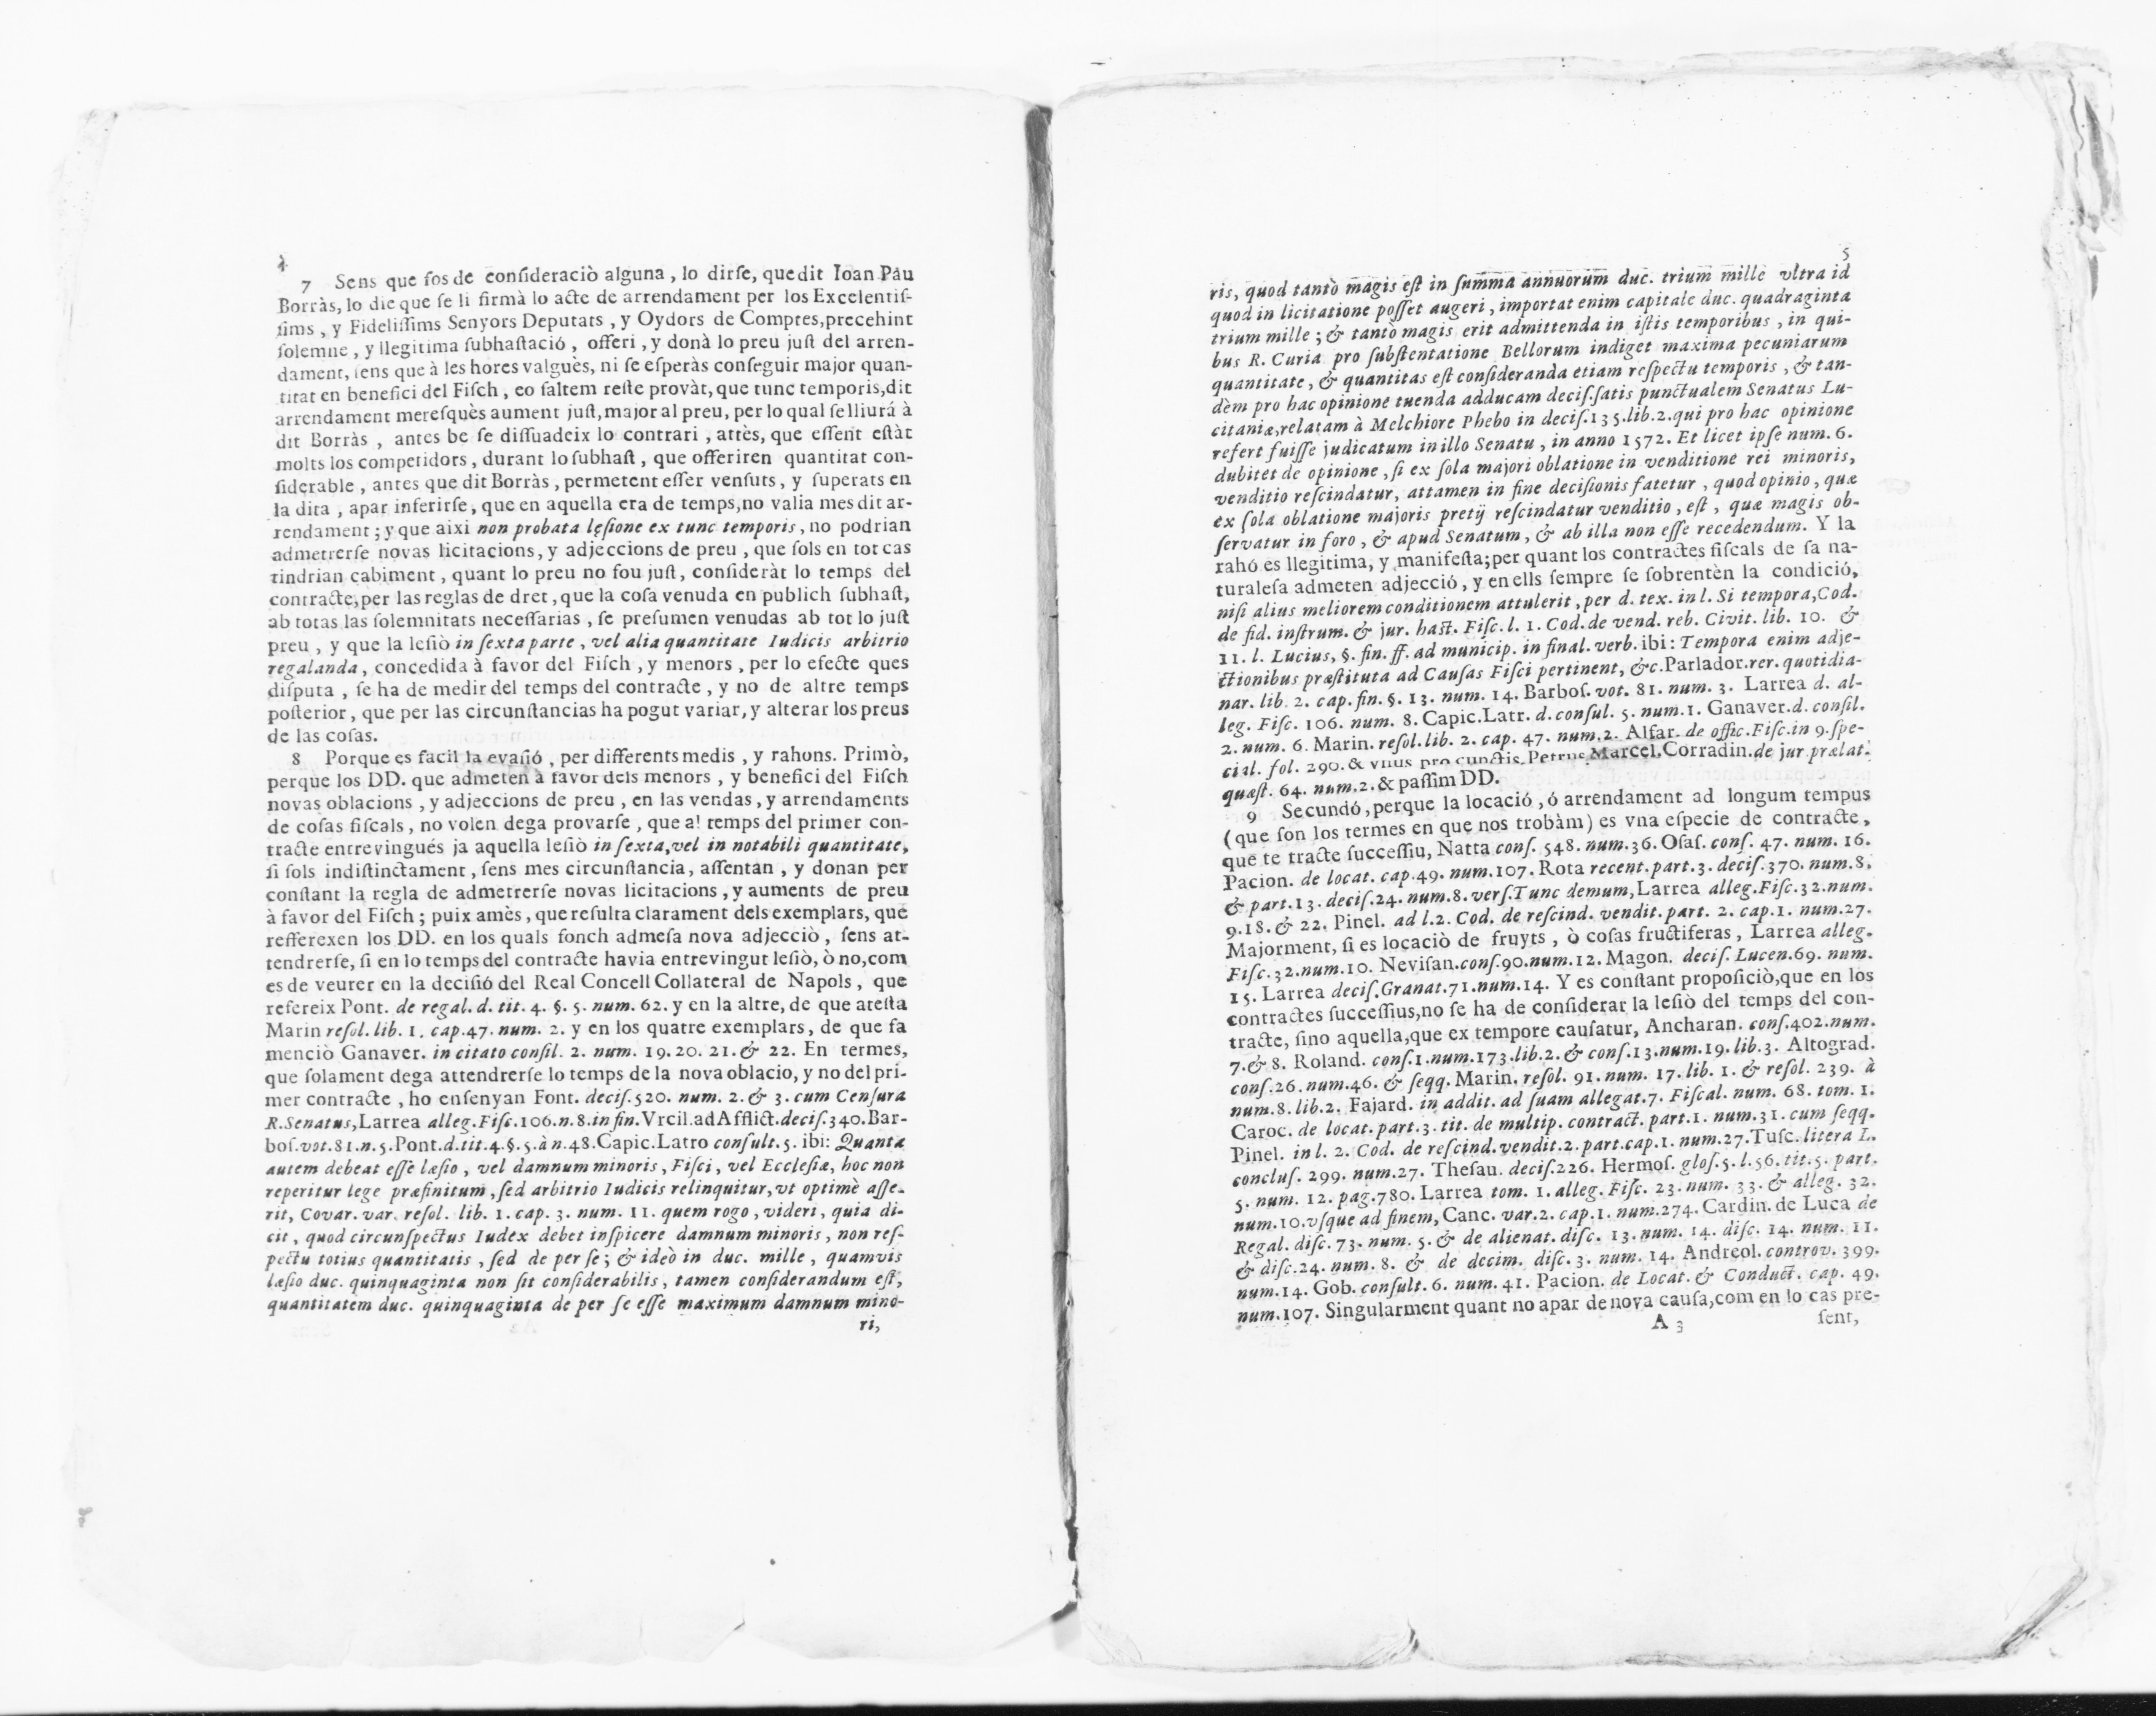 4
7 Sens que fos de consideraciò alguna, lo dirse, que dit Ioan Pàu
Borràs, lo die que se li firmà lo acte de arrendament per los Excelentis-
sims, y Fidelissims Senyors Deputats, y Oydors de Comptes, precehint
solemne, y llegitima subhastació, offeri, y donà lo preu just del arren-
dament, sens que à les hores valguès, ni se esperàs conseguir major quan-
titat en benefici del Fisch, eo saltem reste provàt, que tunc temporis, dit
arrendament meresquès aument just, major al preu, per lo qual se lliurá à
dit Borràs, antes be se dissuadeix lo contrari, attès, que essent estàt
molts los competidors, durant lo subhast, que offeriren quantitat con-
siderable, antes que dit Borràs, permetent esser vensuts, y superats en
la dita, apar inferirse, que en aquella era de temps, no valia mes dit ar-
rendament; y que aixi non probata lęsione ex tunc temporis, no podrian
admetrerse novas licitacions, y adjeccions de preu, que sols en tot cas
tindrian cabiment, quant lo preu no fou just, consideràt lo temps del
contracte, per las reglas de dret, que la cosa venuda en publich subhast,
ab totas las solemnitats necessarias, se presumen venudas ab tot lo just
preu, y que la lesiò in sexta parte, vel alia quantitate Iudicis arbitrio
regalanda, concedida à favor del Fisch, y menors, per lo efecte ques
disputa, se ha de medir del temps del contracte, y no de altre temps
posterior, que per las circunstancias ha pogut variar, y alterar los preus
de las cosas.
8 Porque es facil la evasió, per differents medis, y rahons. Primò,
perque los DD. que admeten à favor dels menors, y benefici del Fisch
novas oblacions, y adjeccions de preu, en las vendas, y arrendaments
de cosas fiscals, no volen dega provarse, que al temps del primer con-
tracte entrevingués ja aquella lesiò in sexta, vel in notabili quantitate,
si sols indistinctament, sens mes circunstancia, assentan, y donan per
constant la regla de admetrerse novas licitacions, y auments de preu
à favor del Fisch; puix amès, que resulta clarament dels exemplars, que
refferexen los DD. en los quals fonch admesa nova adjecciò, sens at-
tendrerse, si en lo temps del contracte havia entrevingut lesiò, ò no, com
es de veurer en la decisió del Real Concell Collateral de Napols, que
refereix Pont. de regal. d. tit. 4. §. 5. num. 62. y en la altre, de que atesta
Marin resol. lib. 1. cap. 47. num. 2. y en los quatre exemplars, de que fa
menciò Ganaver. in citato consil. 2. num. 19. 20. 21. & 22. En termes,
que solament dega attendrerse lo temps de la nova oblacio, y no del pri-
mer contracte, ho ensenyan Font. decis. 520. num. 2. & 3. cum Censura
R. Senatus, Larrea alleg. Fisc. 106. n. 8. in fin. Vrcil. ad Afflict. decis. 340. Bar-
bos. vot. 81. n. 5. Pont. d. tit. 4. §. 5. à n. 48. Capic. Latro consult. 5. ibi: Quanta
autem debeat esse læsio, vel damnum minoris, Fisci, vel Ecclesiæ, hoc non
reperitur lege præfinitum, sed arbitrio Iudicis relinquitur, vt optimè asse-
rit, Covar. var. resol. lib. 1. cap. 3. num. 11. quem rogo, videri, quia di-
cit, quod circunspectus Iudex debet inspicere damnum minoris, non res-
pectu totius quantitatis, sed de per se; & ideò in duc. mille, quamvis
læsio duc. quinquaginta non sit considerabilis, tamen considerandum est,
quantitatem duc. quinquaginta de per se esse maximum damnum mino-
ri,
5
ris, quod tantò magis est in summa annuorum duc. trium mille vltra id
quod in licitatione posset augeri, importat enim capitale duc. quadraginta
trium mille; & tantò magis erit admittenda in istis temporibus, in qui-
bus R. Curia pro substentatione Bellorum indiget maxima pecuniarum
quantitate, & quantitas est consideranda etiam respectu temporis, & tan-
dèm pro hac opinione tuenda adducam decis. satis punctualem Senatus Lu-
citaniæ, relatam à Melchiore Phebo in decis. 135. lib. 2. qui pro hac opinione
refert fuisse judicatum in illo Senatu, in anno 1572. Et licet ipse num. 6.
dubitet de opinione, si ex sola majori oblatione in venditione rei minoris,
venditio rescindatur, attamen in fine decisionis fatetur, quod opinio, quæ
ex sola oblatione majoris pretij rescindatur venditio, est, quæ magis ob-
servatur in foro, & apud Senatum, & ab illa non esse recedendum. Y la
rahó es llegitima, y manifesta; per quant los contractes fiscals de sa na-
turalesa admeten adjecció, y en ells sempre se sobrentèn la condició,
nisi alius meliorem conditionem attulerit, per d. tex. in l. Si tempora, Cod.
de fid. instrum. & jur. hast. Fisc. l. 1. Cod. de vend. reb. Civit. lib. 10. &
11. l. Lucius, §. fin. ff. ad municip. in final. verb. ibi: Tempora enim adje-
ctionibus præstituta ad Causas Fisci pertinent, &c. Parlador. rer. quotidia-
nar. lib. 2. cap. fin. §. 13. num. 14. Barbos. vot. 81. num. 3. Larrea d. al-
leg. Fisc. 106. num. 8. Capic. Latr. d. consul. 5. num. 1. Ganaver. d. consil.
2. num. 6. Marin. resol. lib. 2. cap. 47. num. 2. Alfar. de offic. Fisc. in 9. spe-
cial. fol. 290. & vnus pro cunctis, Petrus Marcel. Corradin. de jur. prælat.
quæst. 64. num. 2. & passim DD.
9 Secundó, perque la locació, ó arrendament ad longum tempus
(que son los termes en que nos trobàm) es vna especie de contracte,
que te tracte successiu, Natta cons. 548. num. 36. Osas. cons. 47. num. 16.
Pacion. de locat. cap. 49. num. 107. Rota recent. part. 3. decis. 370. num. 8.
& part. 13. decis. 24. num. 8. vers. Tunc demum, Larrea alleg. Fisc. 32. num.
9. 18. & 22. Pinel. ad l. 2. Cod. de rescind. vendit. part. 2. cap. 1. num. 27.
Majorment, si es locaciò de fruyts, ò cosas fructiferas, Larrea alleg.
Fisc. 32. num. 10. Nevisan. cons. 90. num. 12. Magon. decis. Lucen. 69. num.
15. Larrea decis. Granat. 71. num. 14. Y es constant proposiciò, que en los
contractes successius, no se ha de considerar la lesiò del temps del con-
tracte, sino aquella, que ex tempore causatur, Ancharan. cons. 402. num.
7. & 8. Roland. cons. 1. num. 173. lib. 2. & cons. 13. num. 19. lib. 3. Altograd.
cons. 26. num. 46. & seqq. Marin. resol. 91. num. 17. lib. 1. & resol. 239. à
num. 8. lib. 2. Fajard. in addit. ad suam allegat. 7. Fiscal. num. 68. tom. 1.
Caroc. de locat. part. 3. tit. de multip. contract. part. 1. num. 31. cum seqq.
Pinel. in l. 2. Cod. de rescind. vendit. 2. part. cap. 1. num. 27. Tusc. litera L.
conclus. 299. num. 27. Thesau. decis. 226. Hermos. glos. 5. l. 56. tit. 5. part.
5. num. 12. pag. 780. Larrea tom. 1. alleg. Fisc. 23. num. 33. & alleg. 32.
num. 10. vsque ad finem, Canc. var. 2. cap. 1. num. 274. Cardin. de Luca de
Regal. disc. 73. num. 5. & de alienat. disc. 13. num. 14. disc. 14. num. 11.
& disc. 24. num. 8. & de decim. disc. 3. num. 14. Andreol. controv. 399.
num. 14. Gob. consult. 6. num. 41. Pacion. de Locat. & Conduct. cap. 49.
num. 107. Singularment quant no apar de nova causa, com en lo cas pre-
A 3 sent,